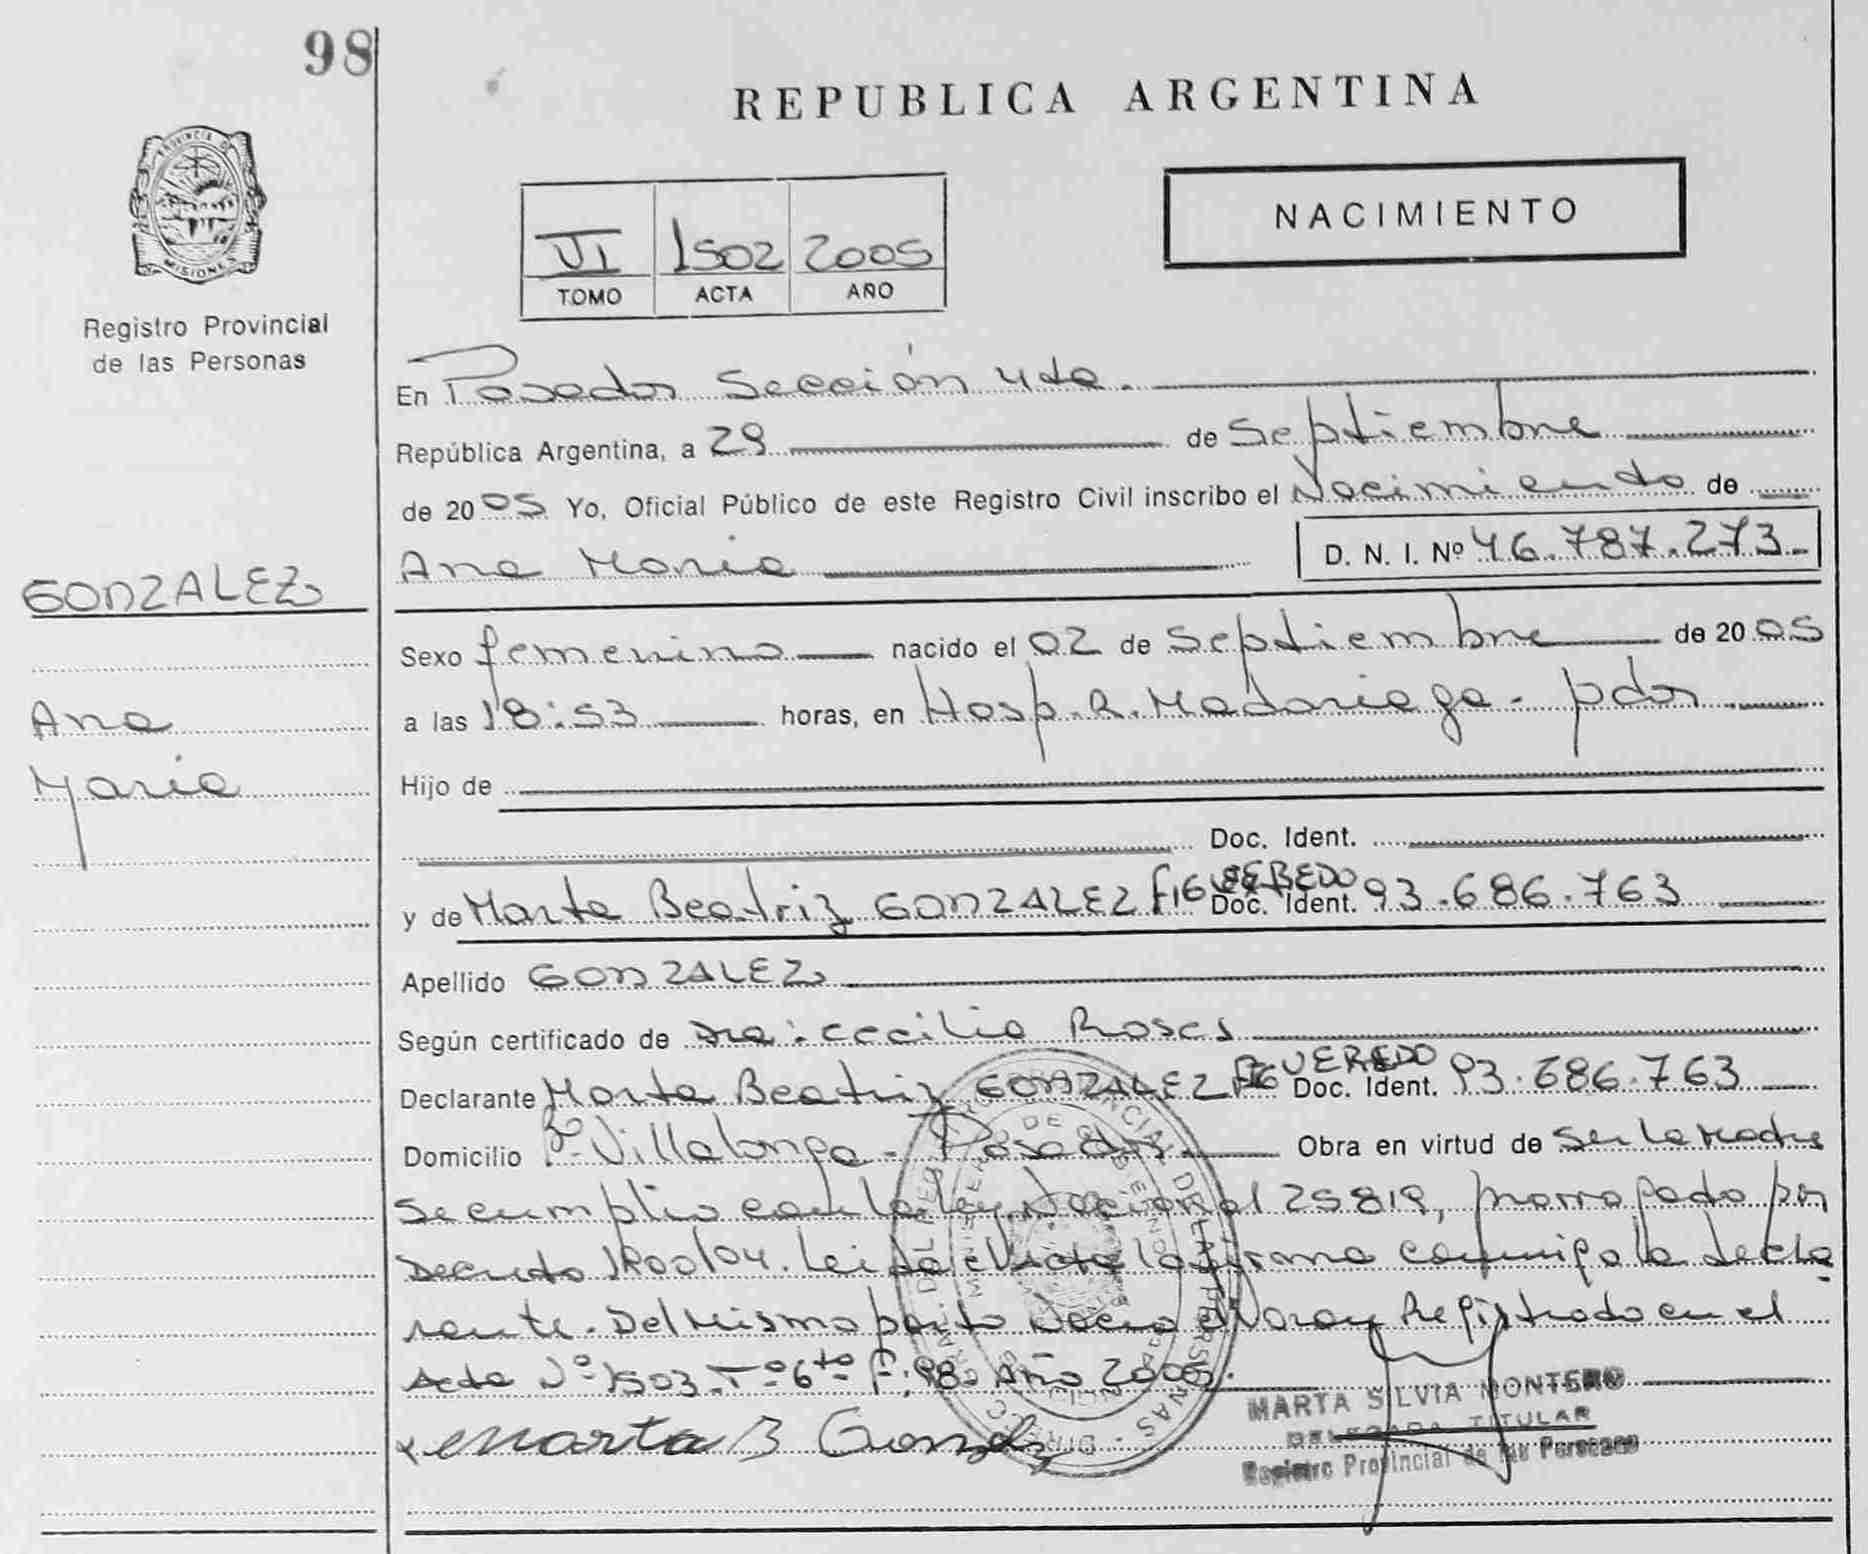 98
REPUBLICA ARGENTINA
PROVINCIA DE
MISIONES
Registro Provincial
de las Personas
NACIMIENTO
VI 1502 2005
TOMO ACTA AÑO
En Posadas Sección 4ta.
República Argentina, a 29 de Septiembre
de 2005 Yo, Oficial Público de este Registro Civil inscribo el Nacimiento de
Ana Maria D. N. I. Nº 46.787.273
GONZALEZ
Ana
Maria
Sexo femenino nacido el 02 de Septiembre de 2005
a las 18:53 horas, en Hosp. R. Madariaga - pdas
Hijo de
Doc. Ident.
y de Marta Beatriz GONZALEZ FIGUEREDO Doc. Ident. 93.686.763
Apellido GONZALEZ
Según certificado de Dra: Cecilia Roses
Declarante Marta Beatriz GONZALEZ FIGUEREDO Doc. Ident. 93.686.763
Domicilio Bº Villalonga - Posadas Obra en virtud de ser la Madre
Se cumplio con la ley Nacional 25819, prorrogado por
Decreto 1800/04. Leida el Acta la firma conmigo la decla
rante. Del Mismo parto Nacio el Varon Registrado en el
Acta Nº 1503 - Tº 6to Fº 98 Año 2005.
Marta B Gonzalez
MARTA SILVIA MONTERO
DELEGADA TITULAR
Registro Provincial de las Personas